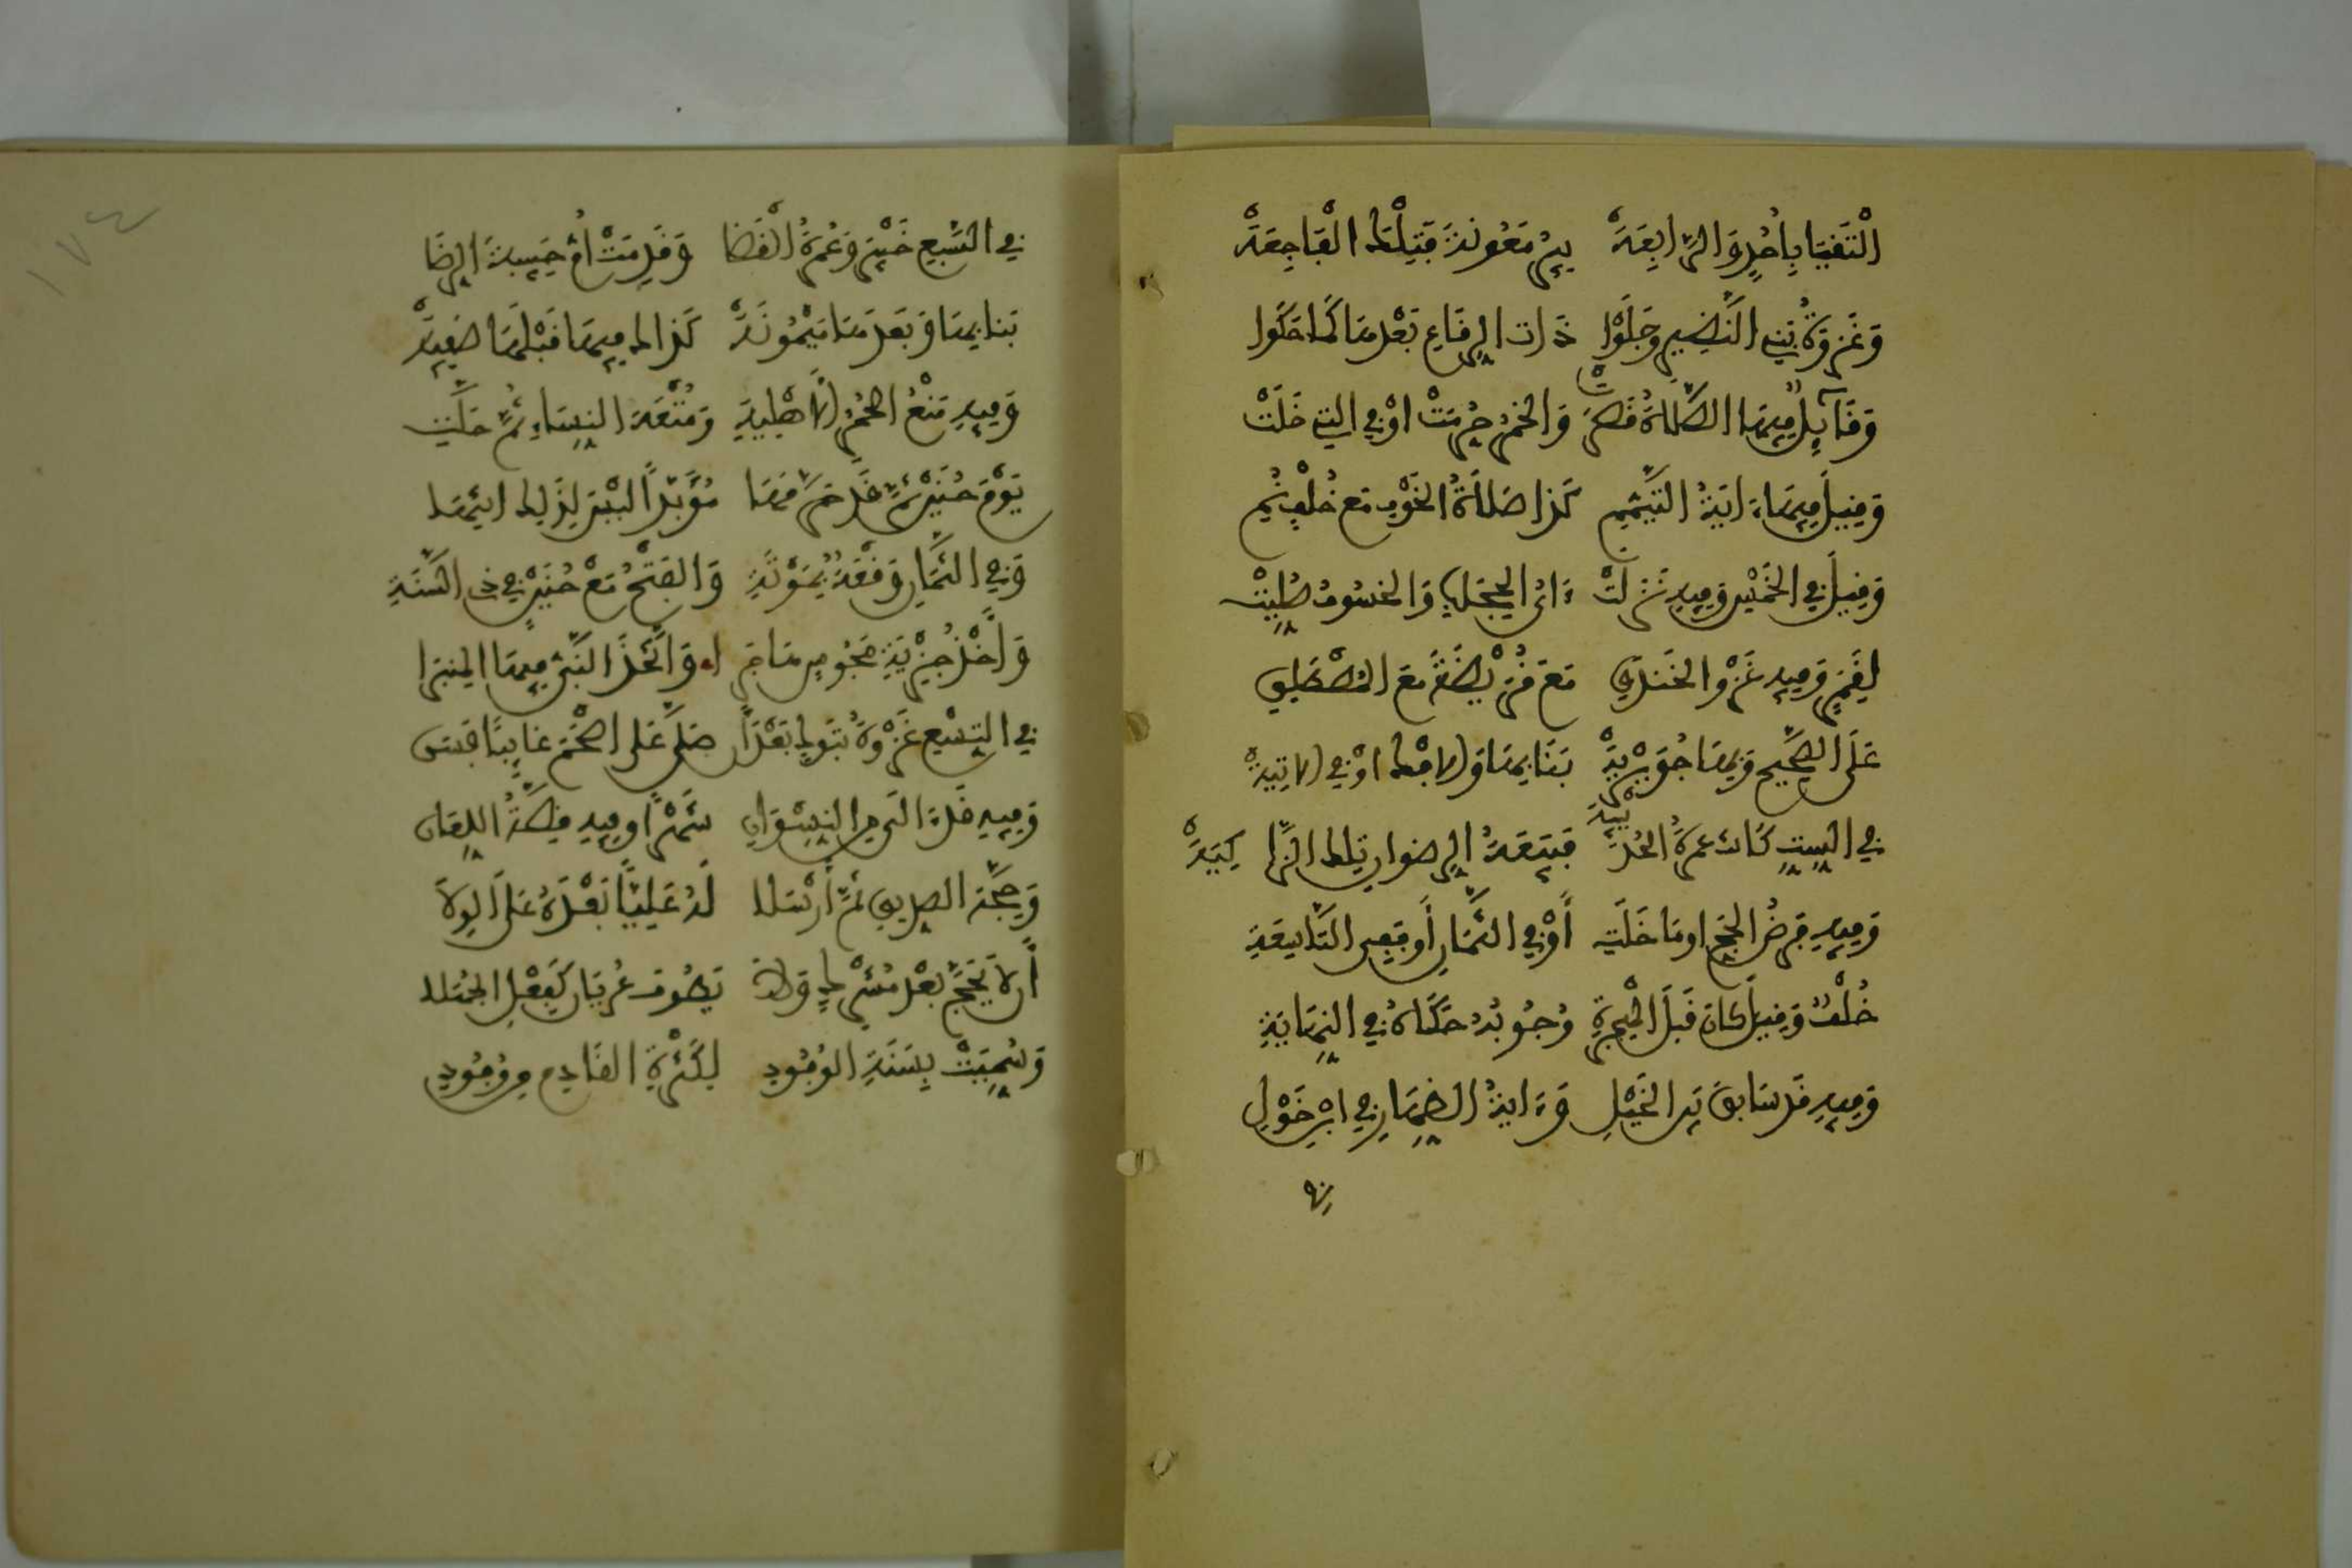 الْتَقَيَا بِأُحُدٍ وَالرَّابِعَهْ بِيرُ مَعُونَةَ فَتِلْكَ الْفَاجِعَهْ
وَغَزْوَةُ بَنِي النَّضِيرِ وَجَلَوْا ذَاتُ الرِّقَاعِ بَعْدَهَا كَمَا حَكَوْا
وَقَائِلٌ فِيهَا الصَّلَاةُ قُصِرَتْ وَالْخَمْرُ حُرِّمَتْ أَوْ فِي التِي خَلَتْ
وَقِيلَ فِيهَا ءَايَةُ التَّيَمُّمِ كَذَا صَلَاةُ الْخَوْفِ مَعْ خُلْفٍ نُمِ
وَقِيلَ فِي الْخَمْسِ وَفِيهِ نَزَلَتْ ءَايُ الْحِجَابِ وَالْخُسُوفُ صُلِّيَتْ
لِقَمَرٍ وَفِيهِ غَزْوُ الْخَنْدَقِ مَعَ قُرَيْظَةَ مَعَ الْمُصْطَلِقِ
عَلَى الصَّحِيحِ وَبِهَا جُوَيْرِيَهْ بَنَى بِهَا وَالِافْكُ أَوْ فِي الْآتِيَهْ
فِي السِّتِّ كَانَتْ عُمْرَةُ الْحُدَيْبِيَهْ فَبَيْعَةُ الرِّضْوَانِ تِلْكَ الزَّاكِيَهْ
وَفِيهِ فَرْضُ الْحَجِّ أَوْ مَا خَلَتِ أَوْ فِي الثَّمَانِ أَوْ فَفِي التَّاسِعَةِ
خُلْفٌ وَقِيلَ كَانَ قَبْلَ الْهِجْرَةِ وُجُوبُهُ حَكَاهُ فِي النِّهَايَةِ
وَفِيهِ قَدْ سَابَقَ بَيْنَ الْخَيْلِ وَءَايَةُ الظِّهَارِ فِي ابْنِ خَوْلِ
في
١٧٤
فِي السَّبْعِ خَيْبَرُ وَعُمْرَةُ الْقَضَا وَقَدِمَتْ أُمُّ حَبِيبَةَ الرِّضَا
بَنَى بِهَا وَبَعْدَهَا مَيْمُونَهْ كَذَاكَ فِيهَا قَبْلَهَا صَفِيَّهْ
وَفِيهِ مَنْعُ الْحُمُرِ الْأَهْلِيَّةِ وَمُتْعَةِ النِّسَاءِ ثُمَّ حَلَّتِ
يَوْمَ حُنَيْنٍ ثُمَّ قَدْ حَرَّمَهَا مُؤَبَّدًا لَيْسَ لِذَلِكَ انْتِهَا
وَفِي الثَّمَانِ وَقْعَةٌ بِمُوتَةِ وَالْفَتْحُ مَعْ حُنَيْنٍ فِي ذِي السَّنَةِ
وَأَخْذُ جِزْيَةِ مَجُوسِ هَاجَرَا وَاتَّخَذَ النَّبِيُّ فِيهَا الْمِنْبَرَا
فِي التِّسْعِ غَزْوَةُ تَبُوكَ بَعْدَ أَنْ صَلَّى عَلَى أَصْحَمَ غَائِبًا فَسَنّ
وَفِيهِ قَدْ ءَالَى مِنَ النِّسْوَانِ شَهْرًا وَفِيهِ قِصَّةُ اللِّعَانِ
وَحَجَّةَ الصِّدِّيقِ ثُمَّ أَرْسَلَا لَهُ عَلِيًّا بَعْدَهُ عَلَى الْوِلَا
أَن لَا يَحُجَّ بَعْدُ مُشْرِكٌ وَلَا يَطُوفَ عُرْيَانٌ كَفِعْلِ الْجُهَلَا
وَسُمِّيَتْ بِسَنَةِ الْوُفُودِ لِكَثْرَةِ الْقَادِمِ مِنْ وُفُودِ